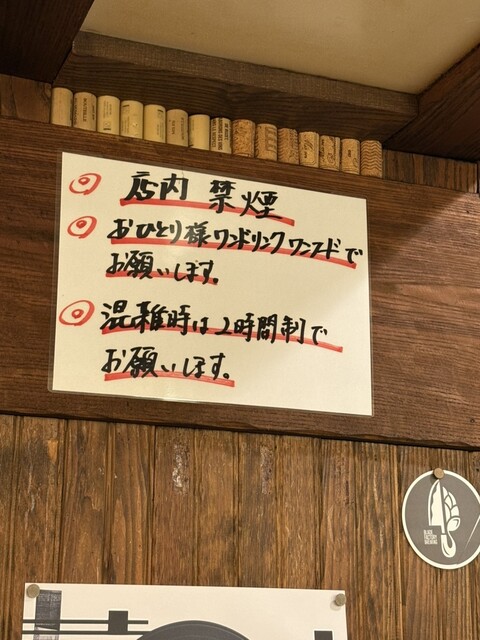 ◎ 店内 禁煙
◎ おひとり様 ワンドリンク ワンフードで
お願いします。
◎ 混雑時は 2時間制で
お願いします。